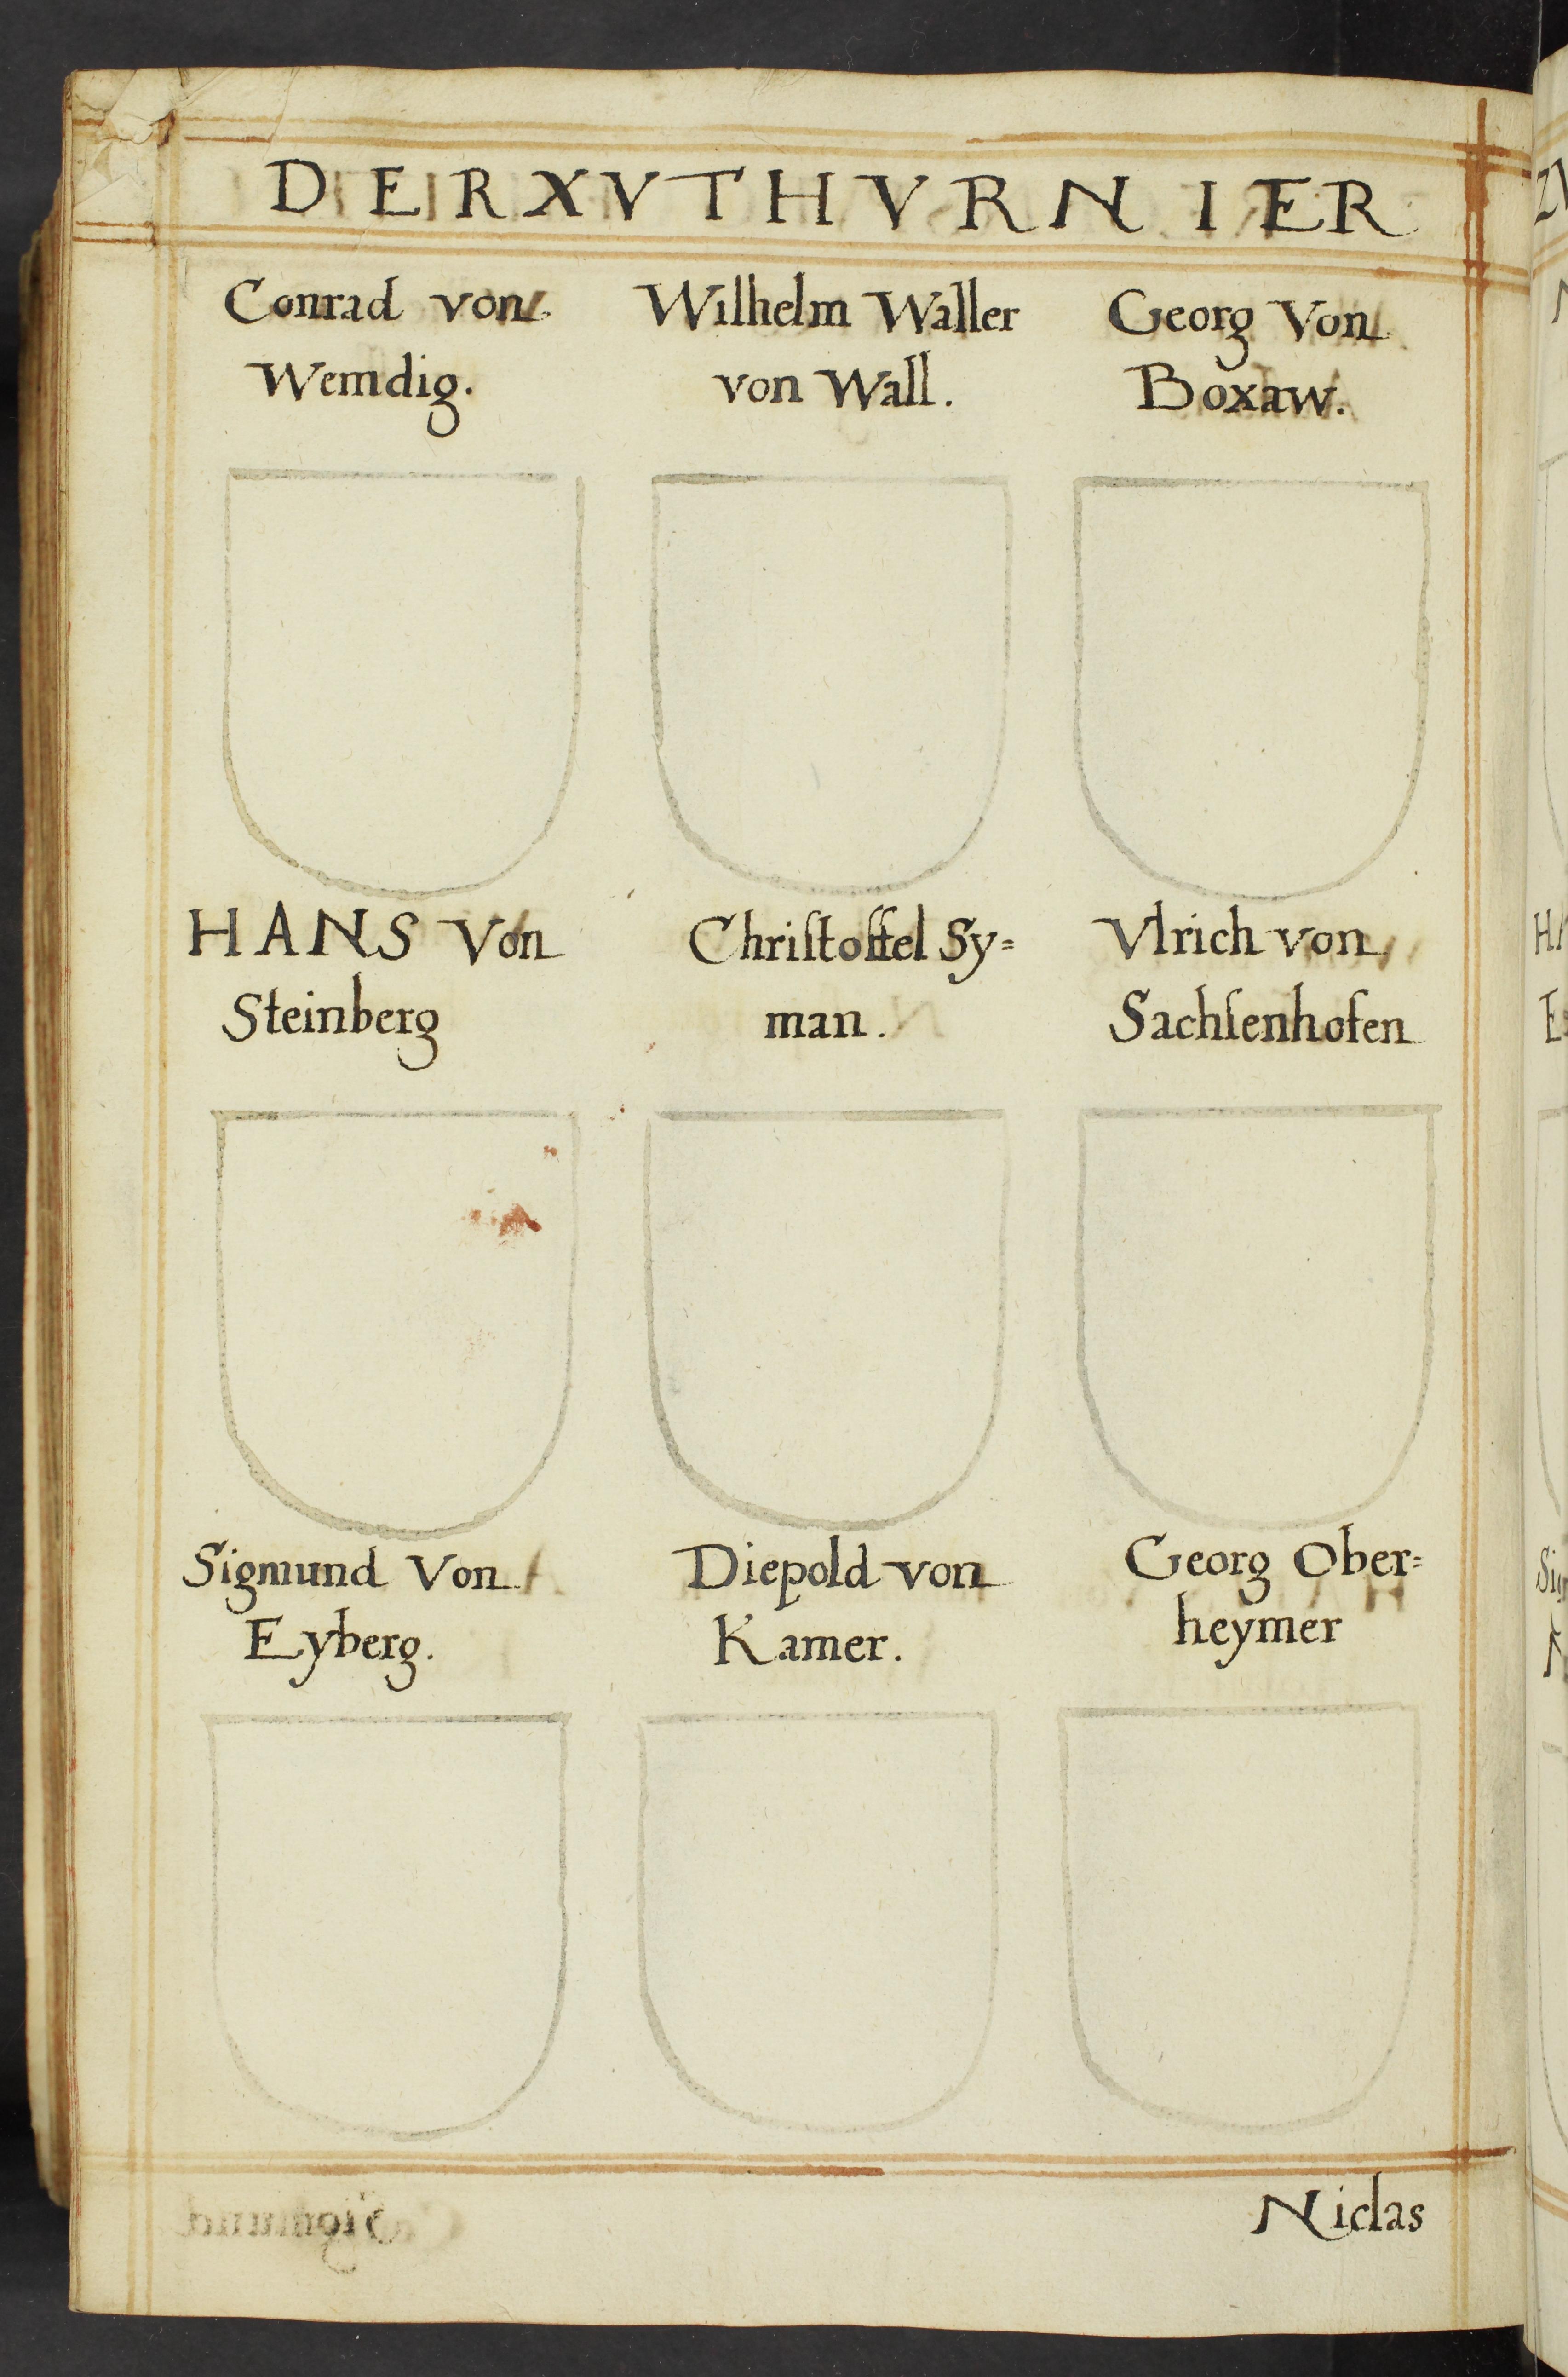 DER XV THVRNIER
Conrad von
Wemdig.
Wilhelm Waller
von Wall.
Georg Von
Boxaw.
HANS Von
Steinberg
Chriſtoffel Sy=
man.
Vlrich von
Sachſenhofen
Sigmund Von
Eyberg.
Diepold von
Kamer.
Georg Ober=
heymer
Niclas